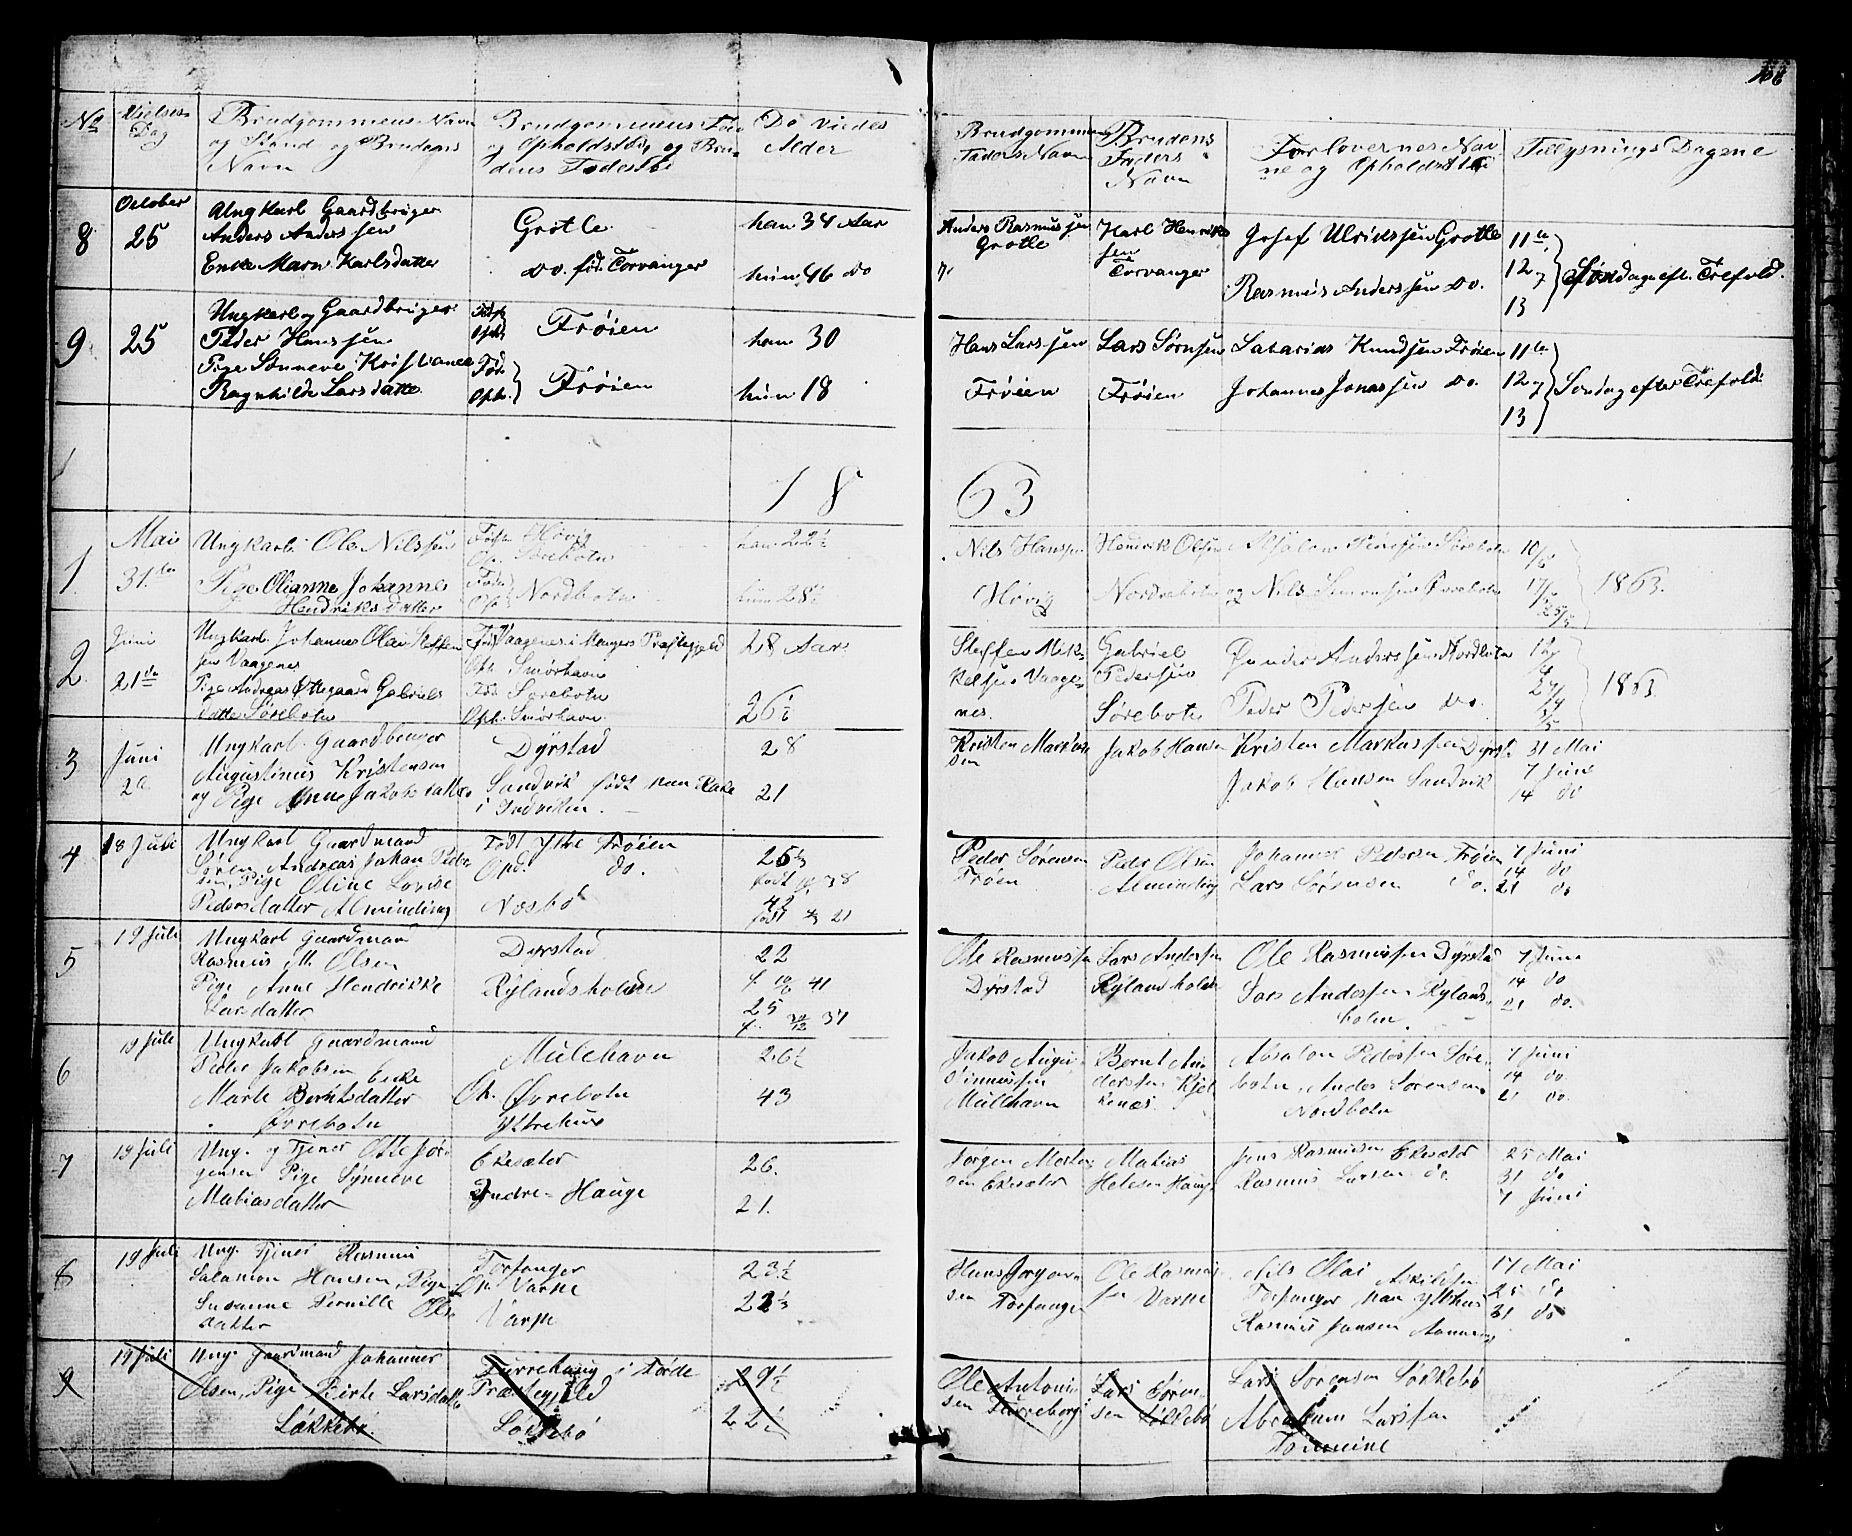 168
No
Vielses-
Dag
Brudgommens Navn
og Stand og Brudens
Navn
Brudgommens Føde
og Opholdssted og Bru-
dens Fødested
De Viedes
Alder
Brudgommens
Faders Navn
Brudens
Faders
Navn
Forlovernes Nav-
ne og Opholdssted
Tillysnings Dagene
8
October
25
Ungkarl Gaardbruger
Anders Anderssen
Enke Maren Karlsdatter
Grotle
do. fød. Torvanger
han 34 Aar
hun 46 do
Anders Rasmussen
Grotle
Karl Henriks
sen
Torvanger
Josef Ulrikssen Grotle
Rasmus Anderssen do.
11te
12
13
Søndag eft. Trefold.
9
25
Ungkarl og Gaardbruger
Peder Hanssen
Pige Sønneve Kristiane
Ragnhilde Larsdatte
Føds
Oph
Frøien
Fød
Oph.
Frøien
han 30
hun 18
Hans Larssen
Frøien
Lars Sørnsen
Frøien
Sakarias Knudsen Frøien
Johannes Jonassen do.
11te
12
13
Søndag efter Trefold
18 63
1
Mai
31.te
Ungkarl Ole Nilssen
Pige Olianne Johanne
Hendriksdatter
Føds Høvig
Oph. Sørebotn
Føds
Oph
Nordbotn
han 22½
hun 28½
Nils Hanssen
Høvig
Henrik Olsen
Nordrebotn
Absalon Pedersen Sørebotn
og Nils Simonsen Sørebotn
10/5
17/5
25/5
1863.
2
Juni
21de
Ungkarl Johannes Olai Steffen
sen Vaagenes
Pige Andreas Øllegaard Gabriels
datte Sørebotn
Fød Vaagenes i Mangers Præstegjeld
Oph. Smørhavn
Fød. Sørebotn
Oph. Smørhavn
28 Aar
26½
Steffen Mik-
kelsen Vaage-
nes.
Gabriel
Pedersen
Sørebotn
Anders Anderssen Nordbotn
Peder Pedersen do.
1863.
3
Juni
Ungkarl. Gaardbruger
Augustinus Kristensen
og Pige Anne Jakobsdatter
Dyrstad
Sandvik født paa Rake
i Indviken
28
21
Kristen Markus
sen
Jakob Hansen
Kristen Markussen Dyrst.
Jakob Hansen Sandvik
31 Mai
7 Juni
14 do
4
18 Juli
Ungkarl Gaardmand
Søren Andreas Johan Peder
sen, Pige Oline Lovise
Pedersdatter Alminding
Født Ytre Frøien
Opd. do.
Næsbø
25½
født 38
42
født 21
Peder Sørensen
Frøen
Peder Olsen
Alminding
Johannes Pedersen Frøien
Lars Sørensen do.
7 Juni
14 do
21 do
5
19 Juli
Ungkarl Gaardmand
Rasmus M. Olsen
Pige Anne Hendrikke
Larsdatter
Dyrstad
Rylandsholme
22
f. 10/6 41
25
f. 20/12 37
Ole Rasmussen
Dyrstad
Lars Andersen
Rylandsholm
Ole Rasmussen Dyrstad
Lars Anderssen Rylands-
holm.
7 Juni
14 do
21 do.
6
19 Juli
Ungkarl Gaardmand
Peder Jakobsen Enke
Marte Berntsdatter
Øvrebotn
Mulehavn
Oh. Øvrebotn
Yttrehus
26½
43
Jakob Augus-
tinussen
Mulehavn
Bernt An-
derssen Kjel
kenæs.
Absalon Pederssen Søre-
botn, Anders Sørensen
Nordbotn
7 Juni
14 do.
21 do.
7
19 Juli
Ung. og Tjener Otte Jør-
gensen Pige Synneve
Matiasdatter
Ekesæter
Indre-Hauge
26.
21.
Jørgen Morten
sen Ekesæter
Matias
Helesen Hauge
Jens Rasmussen Ekesæter
Rasmus Larsen do.
25 Mai
31 do
7 Juni
8
19 Juli
Ung. Tjener Rasmus
Salamon Hansen, Pige
Susanne Pernille Ols
datter
Torfanger
Oh Varpe
Varpe
23½
22½
Hans Jørgen-
sen Torfanger
Ole Rasmus-
sen Varpe
Nils Olai Askildsen
Torfanger paa Ytrehus
Rasmus Jansen
17 Mai
25 do
31 do
9
19 Juli
Ung. Gaardmand Johannes
Olsen, Pige Birte Larsdatte
Løkkebø.
Farrehaug i Førde
Præstegjeld
Løkkebø
29½
22½
Ole Antoni-
sen Farreborg
Lars Søren-
sen Løkkebø
Lars Sørensen Løkkebø
Abraham Larssen